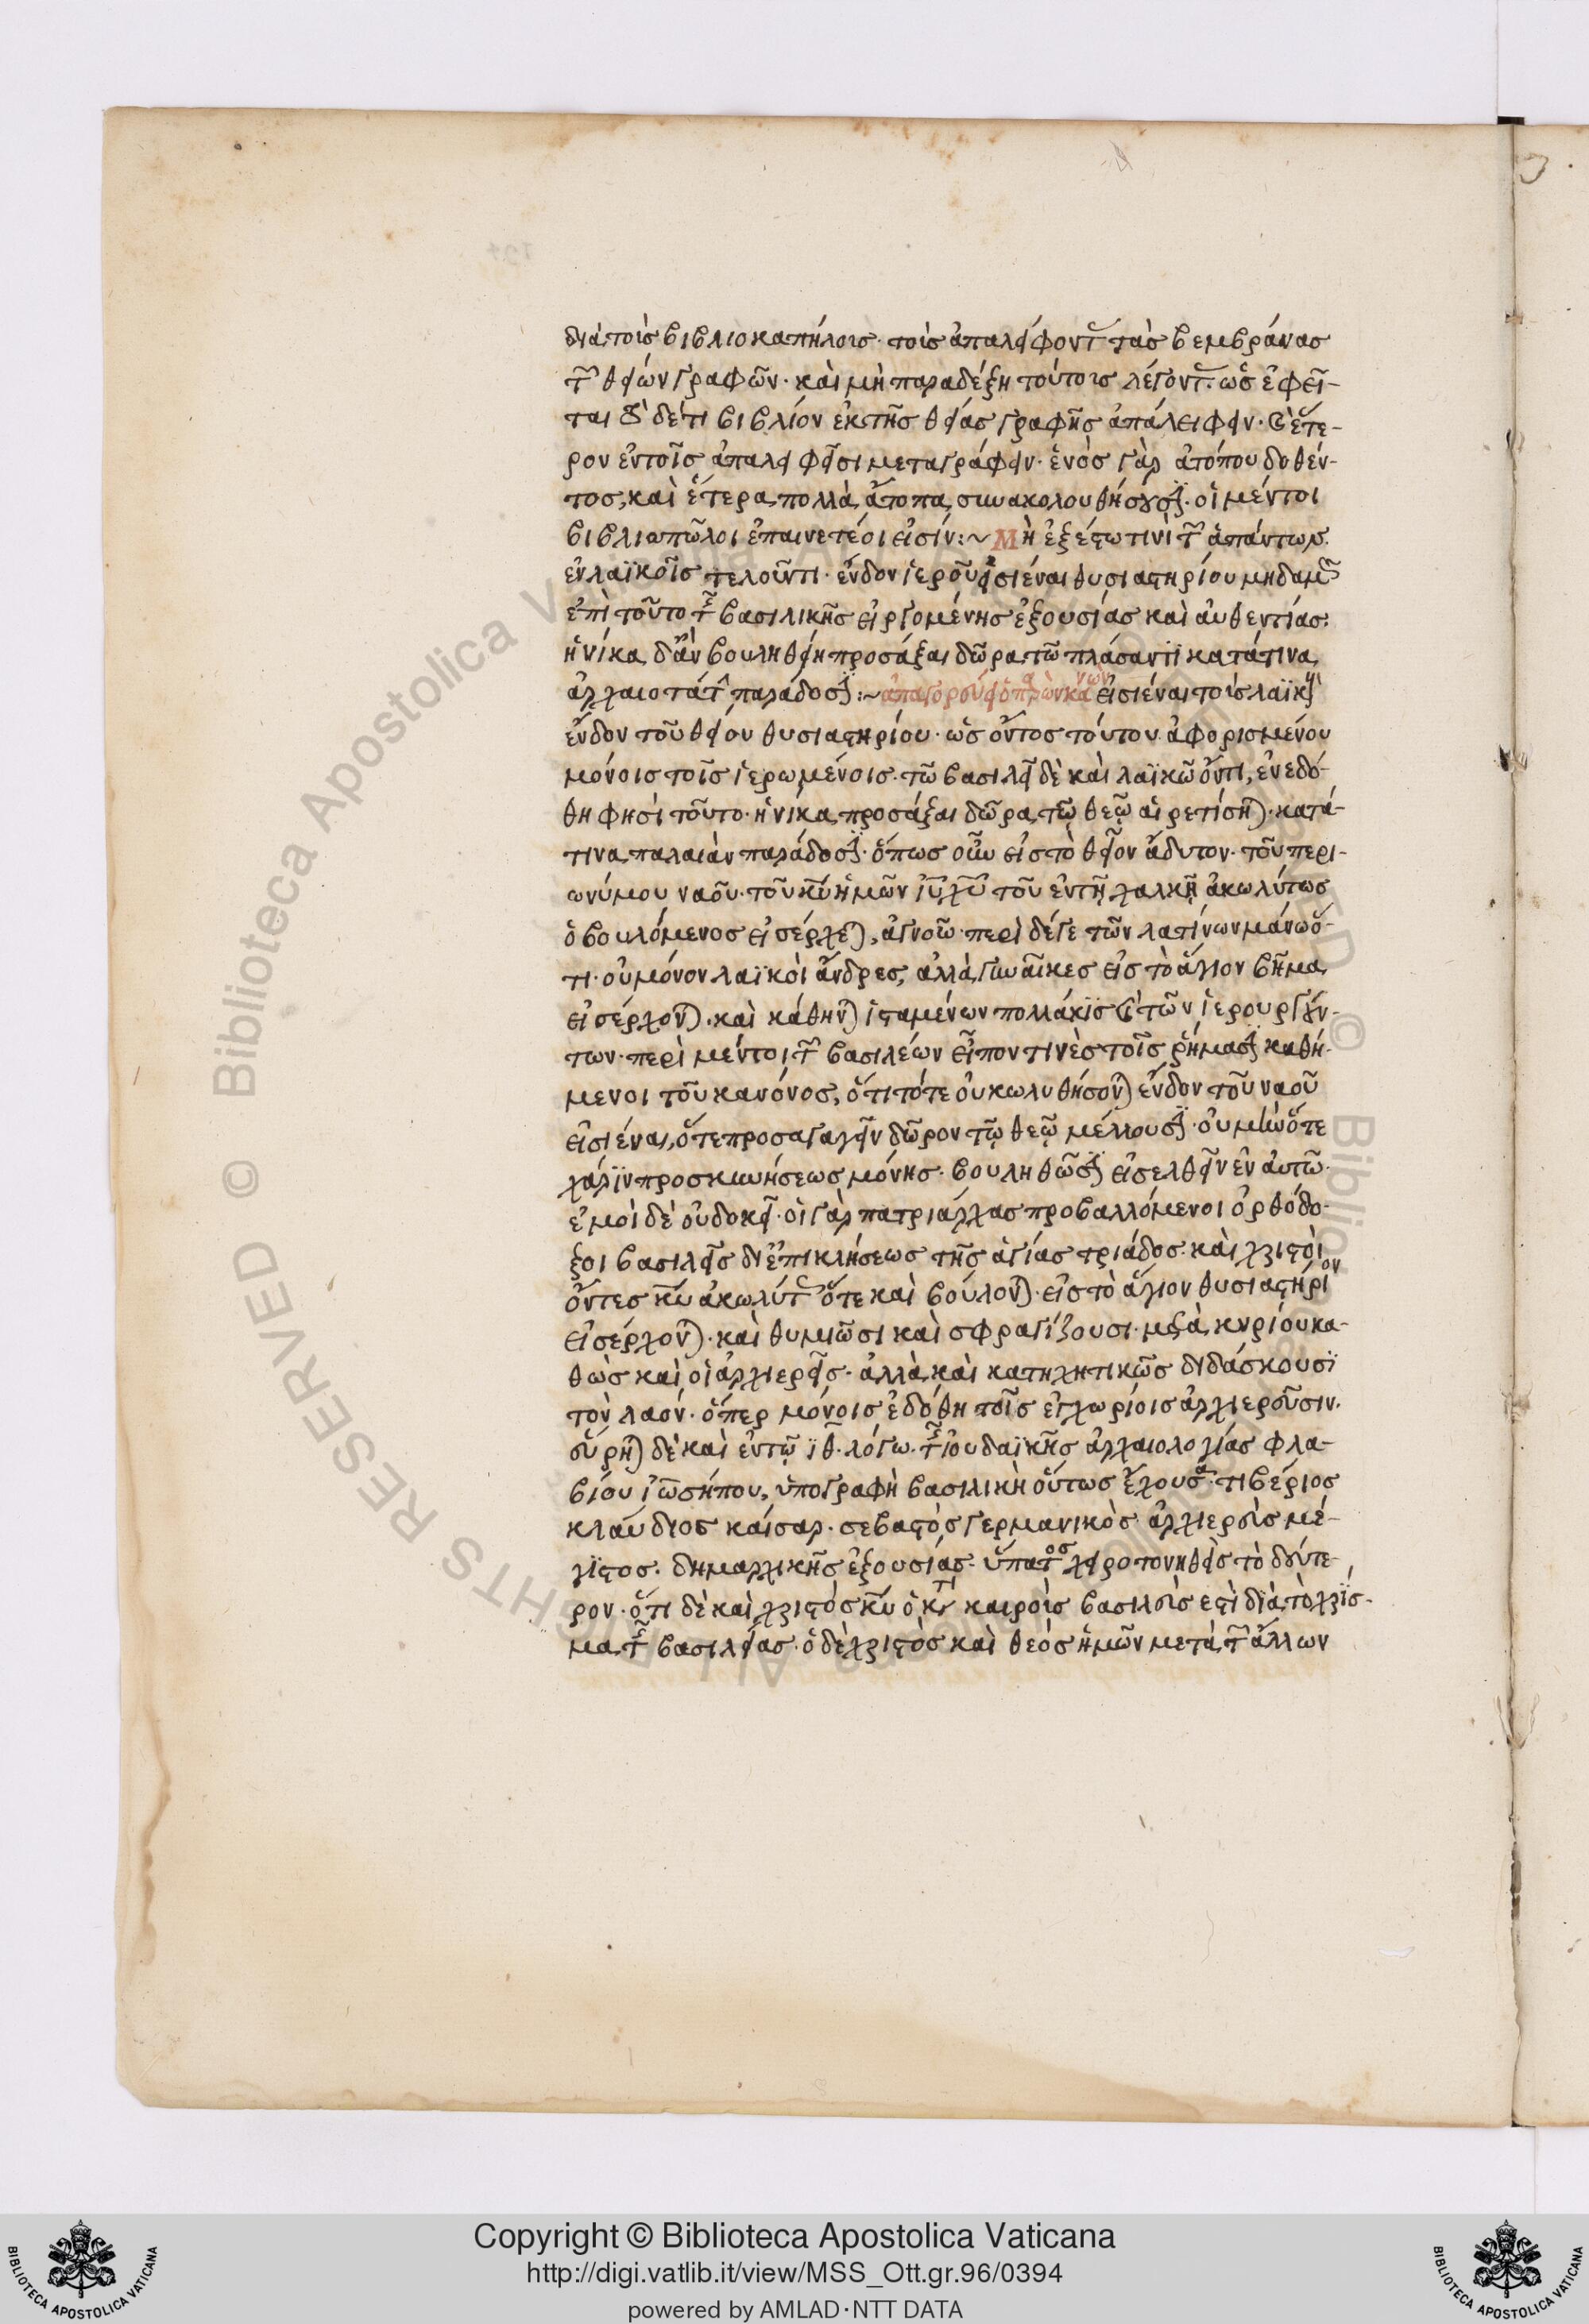 διὰ τοὶς βιβλιοκαπήλοις· τοὶς ἀπαλείφοντ τὰς βεμβράνας
τ θείων γραφῶν· καὶ μὴ παραδέξη τούτοις λέγοντ· ὡς ἐφεῖ-
ται οὐδέ τι βιβλίον ἐκ τῆς θείας γραφῆς ἀπάλειφειν· καὶ ἕτε-
ρον ἐν τοῖς ἀπαλειφεῖσι μεταγράφειν· ἑνὸς γὰρ ἀτόπου δοθέν-
τος, καὶ ἕτερα πολλὰ ἄτοπα συνακολουθήσουσι· οἱ μέντοι
βιβλιοπῶλοι ἐπαινετέοι εἰσίν:~ Μὴ ἐξέστω τινὶ τ ἁπάντων
ἐν λαϊκοῖς τελοῦντι· ἔνδον ἱεροῦ εἰσιέναι θυσιαστηρίου μηδαμ
ἐπὶ τοῦτο τ βασιλικῆς εἰργομένης ἐξουσίας καὶ αὐθεντίας·
ἡνίκα δ' ἂν βουληθείη προσάξαι δῶρα τῶ πλάσαντι κατά τινα
ἀρχαιοτάτ παράδοσι:~ ἀπαγορεύει ὁ παρὼν κανὼν εἰσιέναι τοὶς λαϊκοῖς
ἔνδον τοῦ θείου θυσιαστηρίου· ὡς ὄντος τούτου ἀφορισμένου
μόνοις τοῖς ἱερωμένοις· τῶ βασιλεῖ δὲ καὶ λαϊκῶ ὄντι, ἐνεδό-
θη φησὶ τοῦτο· ἡνίκα προσάξαι δῶρα τῶ θεῶ αἱρετίσηται· κατά
τινα παλαιὰν παράδοσι· ὅπως οὖν εἰς τὸ θεῖον ἄδυτον· τοῦ περι-
ωνύμου ναοῦ· τοῦ κυ ἡμῶν ιυ χυ τοῦ ἐν τῆ χαλκῆ ἀκωλύτως
ὁ βουλόμενος εἰσέρχεται, ἀγνοῶ· περὶ δέ γε τῶν λατίνων μάνω ὅ-
τι· οὐ μόνον λαϊκοὶ ἄνδρες, ἀλλὰ γυναῖκες εἰς τὸ ἅγιον βῆμα
εἰσέρχονται· καὶ κάθηνται ἱσταμένων πολλάκις καὶ τῶν ἱερουργούν-
των· περὶ μέντοι τ βασιλέων εἶπον τινὲς τοῖς ῥήμασι καθή-
μενοι τοῦ κανόνος, ὅτι τότε οὐ κωλυθήσονται ἔνδον τοῦ ναοῦ
εἰσιέναι, ὅτε προσαγαγεῖν δῶρον τῶ θεῶ μέλλουσι· οὐ μὴν ὅτε
χάριν προσκυνήσεως μόνης· βουληθῶσι εἰσελθεῖν ἐν αὐτῶ·
ἐμοὶ δὲ οὐ δοκεῖ· οἱ γὰρ πατριάρχας προβαλλόμενοι ὀρθόδο-
ξοι βασιλεῖς δι' ἐπικλήσεως τῆς ἁγίας τριάδος· καὶ χριστοὶ
ὄντες κυ ἀκωλύτ ὅτε καὶ βούλονται· εἰς τὸ ἅγιον θυσιαστήριον
εἰσέρχονται· καὶ θυμιῶσι καὶ σφραγίζουσι· μετὰ κηρίου κα-
θὼς καὶ οἱ ἀρχιερεῖς· ἀλλὰ καὶ κατηχητικῶς διδάσκουσι
τὸν λαόν· ὅπερ μόνοις ἐδόθη τοῖς ἐγχωρίοις ἀρχιερεῦσιν·
εὕρηται δὲ καὶ ἐν τῶ ιθ· λόγω· τ ἰουδαϊκῆς ἀρχαιολογίας φλα-
βίου ἰωσήπου, ὑπογραφὴ βασιλικὴ οὕτως ἔχουσα· τιβέριος
κλαύδιος καίσαρ· σεβαστὸς γερμανικὸς ἀρχιερεὺς μέ-
γιστος· δημαρχικῆς ἐξουσίας· ὕπατος χειροτονηθεὶς τὸ δεύτε-
ρον· ὅτι δὲ καὶ χριστός κυ ὁ κατ καιροὺς βασιλεὺς ἐστὶ διὰ τὸ χρίσ-
μα τ βασιλείας· ὁ δὲ χριστὸς καὶ θεὸς ἡμῶν μετὰ τ ἄλλων
Copyright © Biblioteca Apostolica Vaticana
http://digi.vatlib.it/view/MSS_Ott.gr.96/0394
powered by AMLAD·NTT DATA